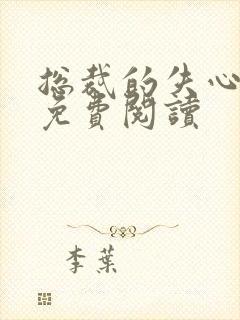 总裁的失心
免費閱讀
李葉